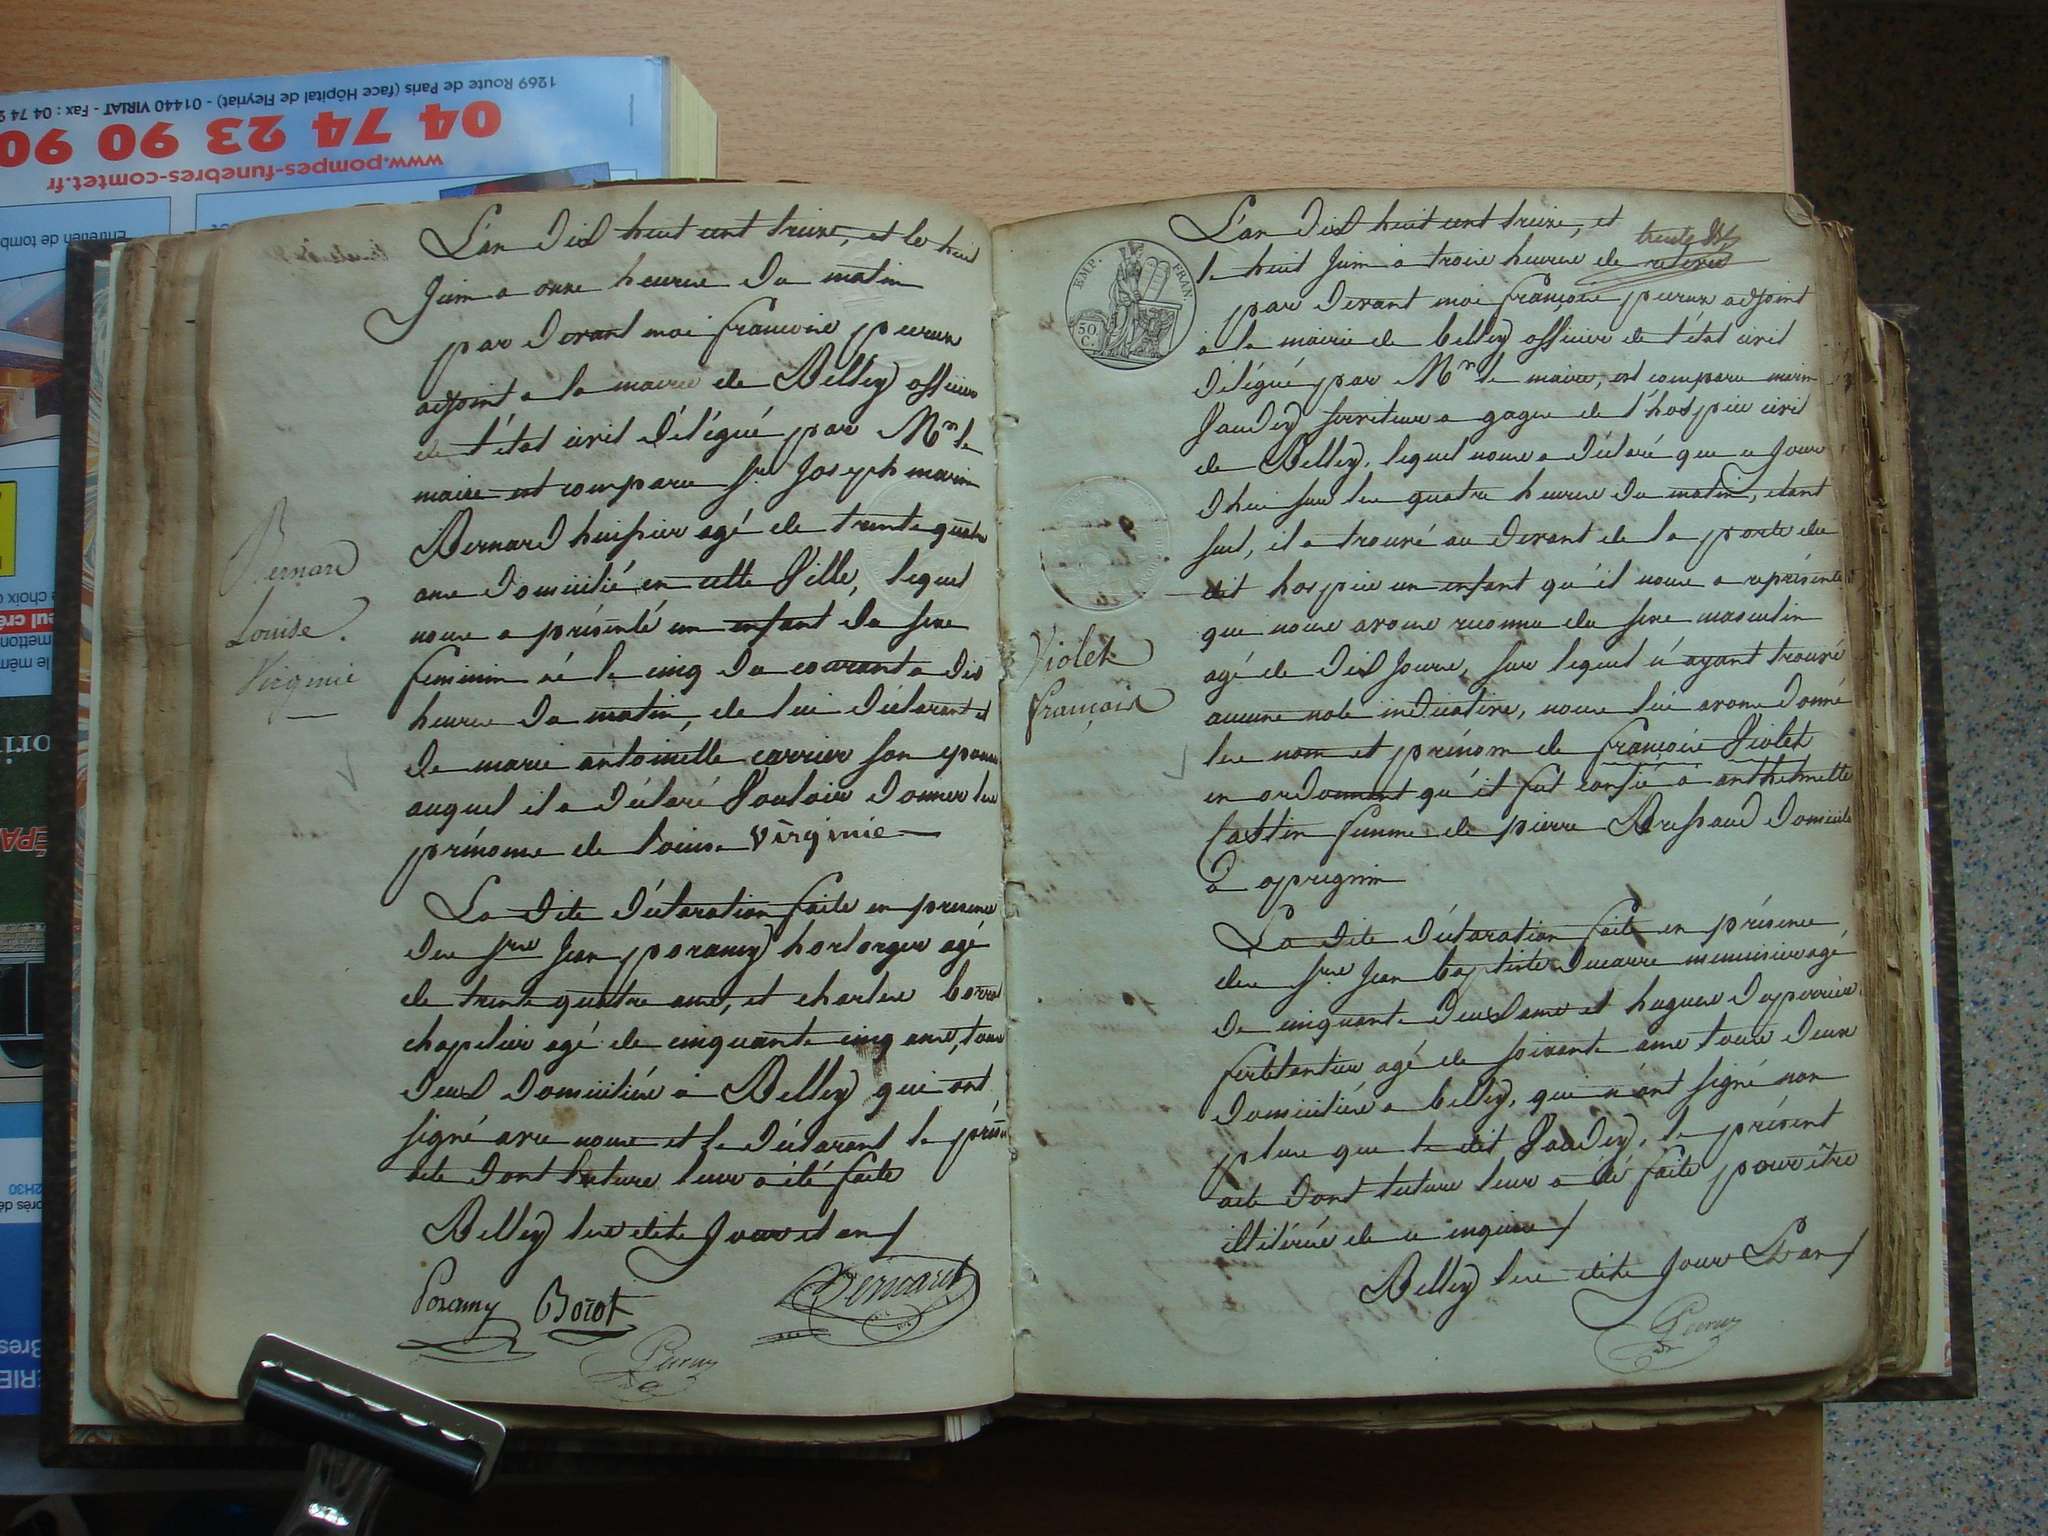 1269 Route de Paris (face Hôpital de Fleyriat) - 01440 VIRIAT - Fax : 04 74 2
04 74 23 90 90
www.pompes-funebres-comtet.fr
Entretien de tomb
Bernard
Louise
Virginie
L'an dix huit cent treize, et le huit
Juin a onze heures du matin
par devant moi françois
adjoint a la mairie de Belley officier
de l'état civil délégué par Mr le
maire est comparu Sr Joseph marin
Bernard huissier agé de trente quatre
ans domicilié en cette Ville, lequel
nous a présenté un enfant du sexe
feminin né le cinq du courant a dix
heures du matin, de lui déclarant et
de marie antoinette carrier son epouse
auquel il a déclaré Vouloir donner les
prénoms de Louise Virginie
La dite déclaration faite en presence
des srs Jean poramy horloger agé
de trente quatre ans, et charles borrot
chapelier agé de cinquante cinq ans, tous
deux domiciliés à Belley qui ont
signé avec nous et le déclarant le présent
acte dont lecture leur a été faite
Belley les dits Jour et an
Poramy Borot Bernard
EMP. FRAN.
50 C.
Violet
françois
L'an dix huit cent treize, et
le huit Juin a trois heures de
par devant moi françois adjoint
a la mairie de belley officier de l'état civil
délégué par Mr le maire, est comparu marin
Vaudey serviteur a gages de l'hospice civil
de Belley, lequel nous a déclaré que a Jour
dhui sur les quatre heures du matin, étant
seul, il a trouvé au devant de la porte du
dit hospice un enfant qu'il nous a représenté
que nous avons reconnu du sexe masculin
agé de dix Jours, sur lequel n'ayant trouvé
aucune note indicative, nous lui avons donné
les nom et prénom de françois Violet
en ordonnant qu'il fut confié à anthelmette
Castin femme de pierre Bressaud domicilié
à apregnin
La dite déclaration faite en présence
des srs Jean baptiste ducarre menuisier agé
de cinquante deux ans et hugues duperrier
ferblantier agé de soixante ans tous deux
domiciliés a belley, qui n'ont signé non
plus que le dit Vaudey, le présent
acte dont lecture leur a été faite pour être
illitérés de ce enquis
Belley les dits Jour & an